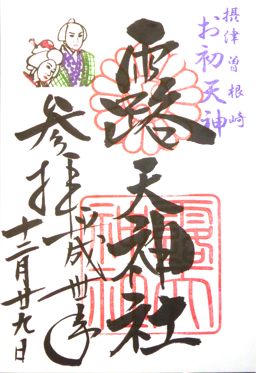 摂津曽根崎
お初天神
露天神社
参拝
平成廿年
十二月廿九日